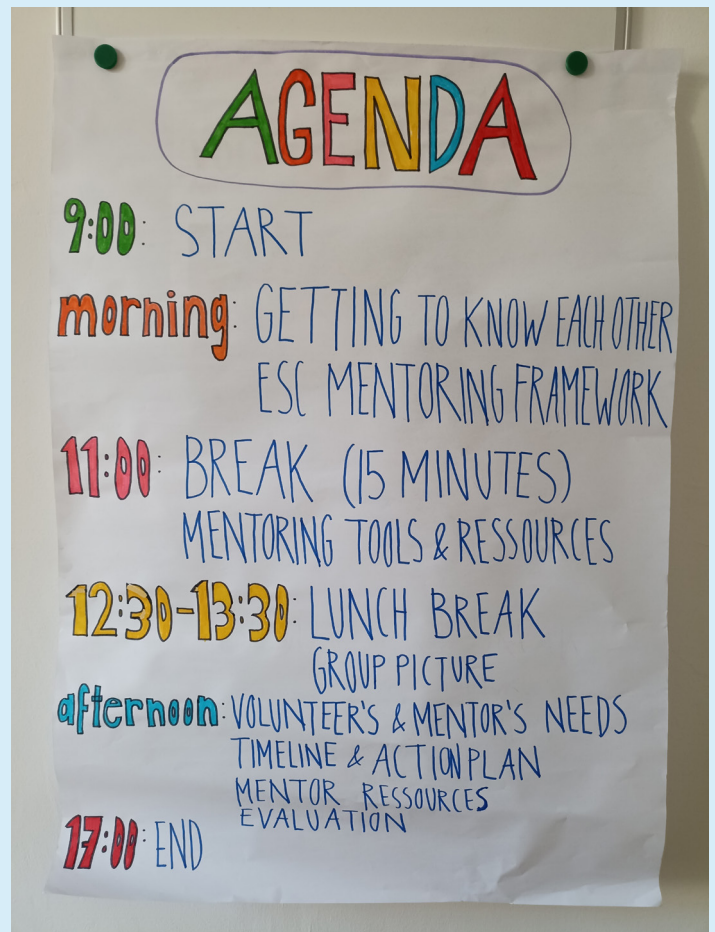 AGENDA
9:00: START
morning: GETTING TO KNOW EACH OTHER
ESC MENTORING FRAMEWORK
11:00: BREAK (15 MINUTES)
MENTORING TOOLS & RESSOURCES
12:30-13:30: LUNCH BREAK
GROUP PICTURE
afternoon: VOLUNTEER'S & MENTOR'S NEEDS
TIMELINE & ACTION PLAN
MENTOR RESSOURCES
EVALUATION
17:00: END